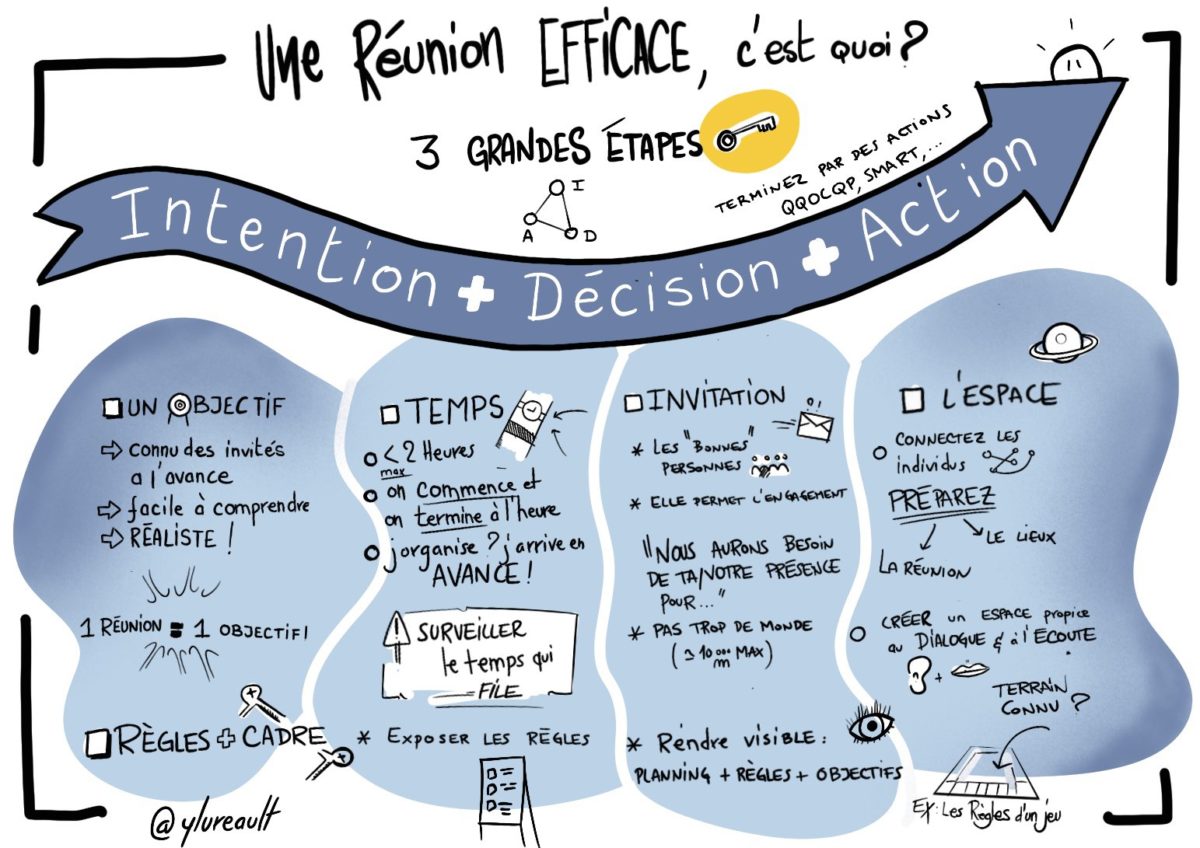 Une Réunion EFFICACE, c'est quoi ?
3 GRANDES ÉTAPES
I
A
D
TERMINEZ PAR DES ACTIONS
QQOCQP, SMART,...
Intention + Décision + Action
UN OBJECTIF
⇨ connu des invités
a l'avance
⇨ facile à comprendre
⇨ RÉALISTE !
1 RÉUNION = 1 OBJECTIF!
TEMPS
< 2 Heures
max
on commence et
on termine à l'heure
j'organise ? j'arrive en
AVANCE !
! SURVEILLER
le temps qui
FILE
INVITATION
* LES "BONNES"
PERSONNES
* ELLE PERMET L'ENGAGEMENT
"NOUS AURONS BESOIN
DE TA/VOTRE PRÉSENCE
POUR..."
* PAS TROP DE MONDE
10 MAX)
L'ESPACE
CONNECTEZ LES
individus
PRÉPAREZ
LE LIEUX
LA RÉUNION
CRÉER un ESPACE propice
au DIALOGUE & à l'ÉCOUTE
+
TERRAIN
CONNU ?
Ex: Les Règles d'un jeu
RÈGLES + CADRE
* EXPOSER LES RÈGLES
* Rendre visible :
PLANNING + RÈGLES + OBJECTIFS
@ylureault